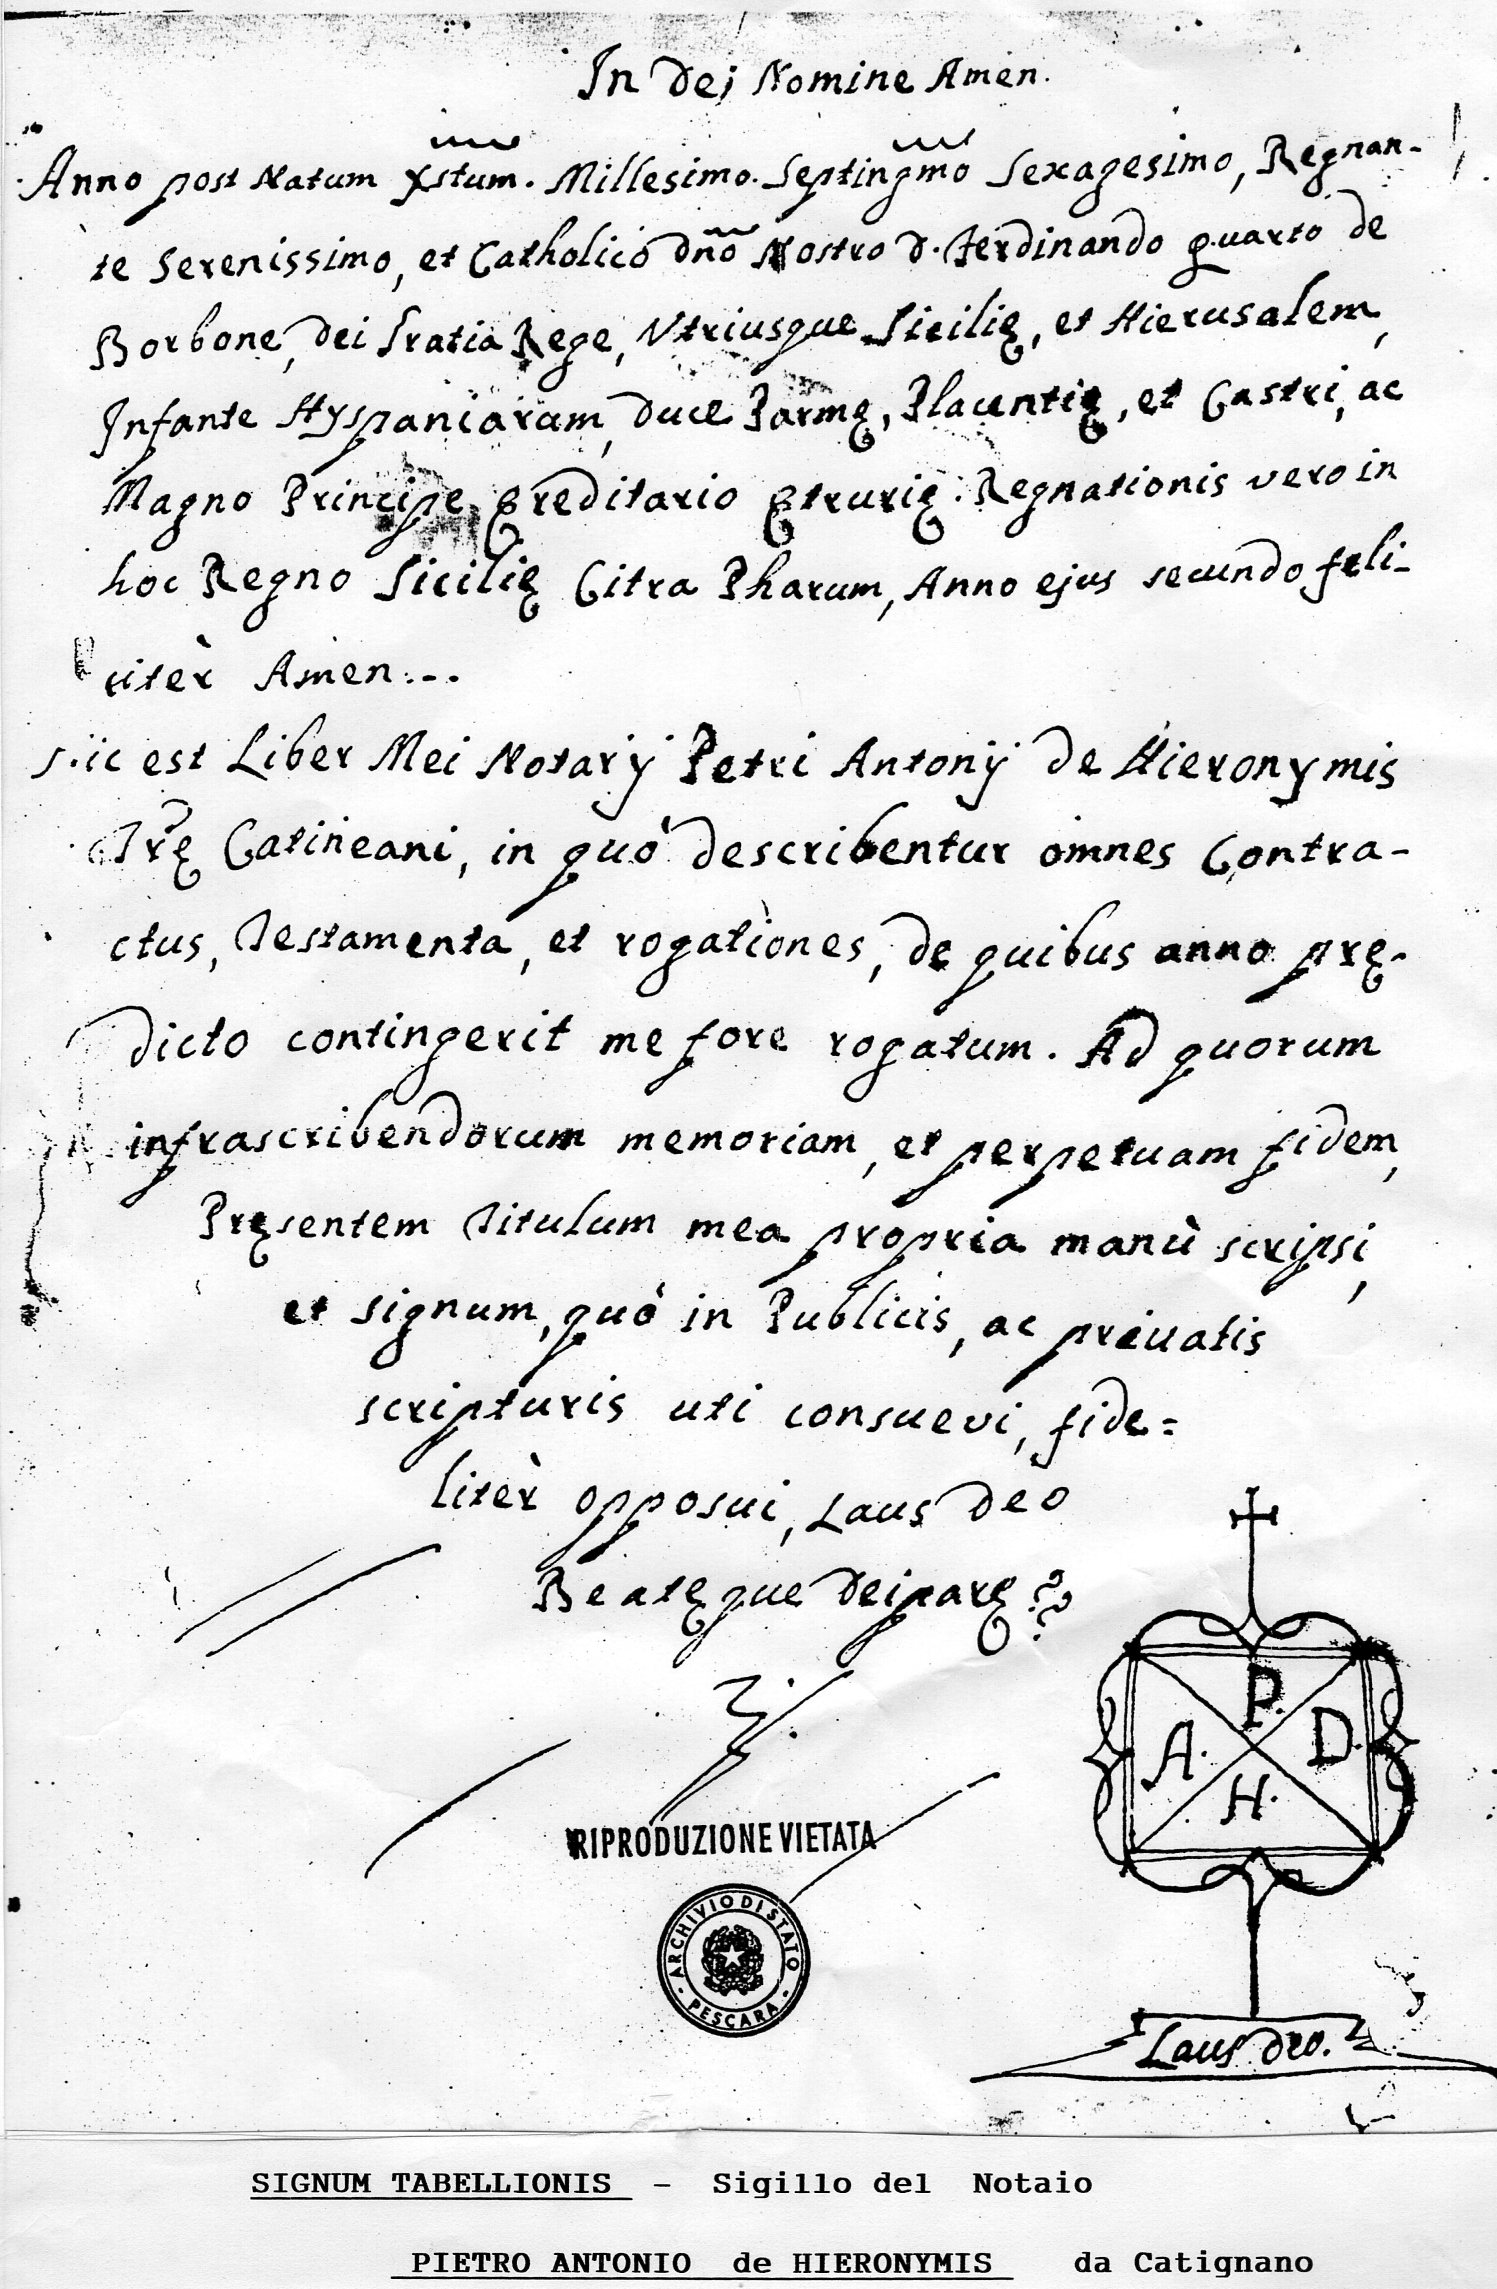 In Dei Nomine Amen.
Anno post Natum Xstum. Millesimo. Septingmo Sexagesimo, Regnan-
te Serenissimo, et Catholico dño Nostro D. Ferdinando quarto de
Borbone, dei Gratia Rege, Vtriusque Sicilię, et Hierusalem,
Infante Hyspaniarum, duce Parmę, Placentię, et Castri, ac
Magno Principe Ereditario Etrurię. Regnationis vero in
hoc Regno Sicilię Citra Pharum, Anno ejus secundo feli-
citèr Amen.
Hic est Liber Mei Notarÿ Petri Antonÿ de Hieronymis
Tr̃ę Catineani, in quò describentur omnes Contra-
ctus, Testamenta, et rogationes, de quibus anno prę-
dicto contingerit me fore rogatum. Ad quorum
infrascribendorum memoriam, et perpetuam fidem,
Pręsentem Titulum mea propria manù scripsi,
et signum, quò in Publicis, ac privatis
scripturis uti consuevi, fide=
litèr opposui, Laus Deo
Beatęque Deiparę
P.
A. D.
H.
RIPRODUZIONE VIETATA
ARCHIVIO DI STATO
- PESCARA -
Laus Deo.
SIGNUM TABELLIONIS - Sigillo del Notaio
PIETRO ANTONIO de HIERONYMIS da Catignano